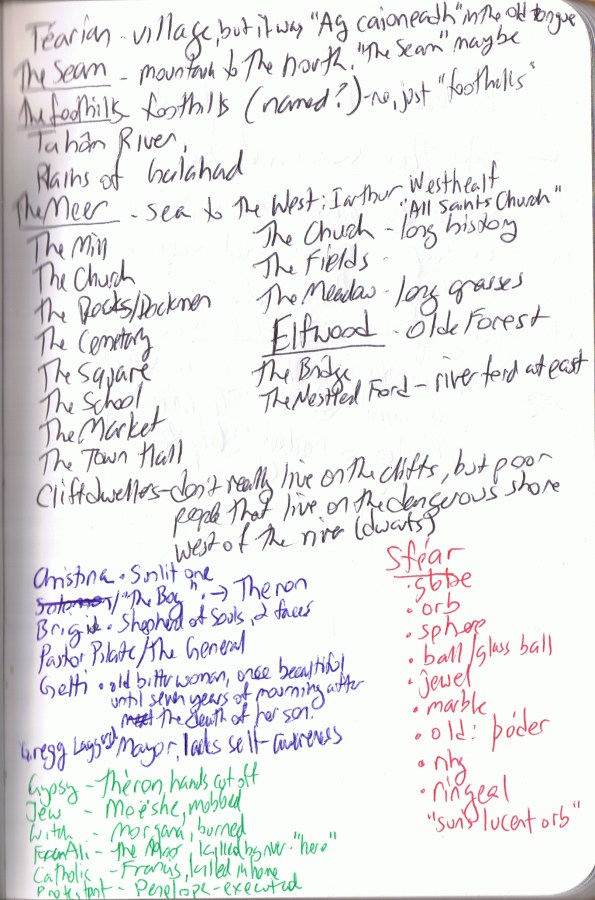 Téarian - village, but it was "Ag caioneadh" in the old tongue
The Seam - mountain to the north. "The Seam" maybe
The foothills foothills (named?) - no, just "foothills"
Tahân River,
Plains of Galahad
The Meer - sea to the West: Iarthur Westhealf
The Mill
The Church
The Docks/Dockmen
The Cemetary
The Square
The School
The Market
The Town Hall
The Church - long history "All Saints Church"
The Fields -
The Meadow - long grasses
Elfwood - Olde Forest
The Bridge
The Nestled Ford - river ford at east
Cliftdwellers - don't really live on the clifts, but poor
people that live on the dangerous shore
west of the river (dwarfs)
Christina • Sunlit one
Solomon / "The Boy" → Theron
Brigid • Shepherd of Souls, 2 faces
Pastor Pilate/The General
Getti • old bitter woman, once beautiful
until seven years of mourning after
the death of her son.
Gregg Laggard Mayor, lacks self-awareness
Gypsy - Theron, hands cut off
Jew - Moeshe, mobbed
Witch - Morgana, burned
The Moor, killed by river "hero"
Catholic - Francis, killed in home
Protestant - Penelope - executed
Sféar
• globe
• orb
• sphere
• ball/glass ball
• jewel
• marble
• old: póder
• nhg
• ringeal
"sun's lucent orb"